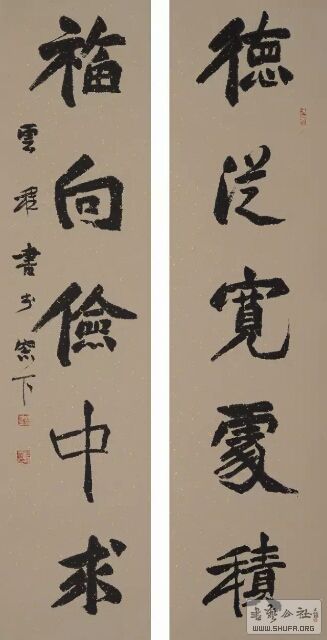 德從寬處積
福向儉中求
雲書于
书艺公社
WWW.SHUFA.ORG